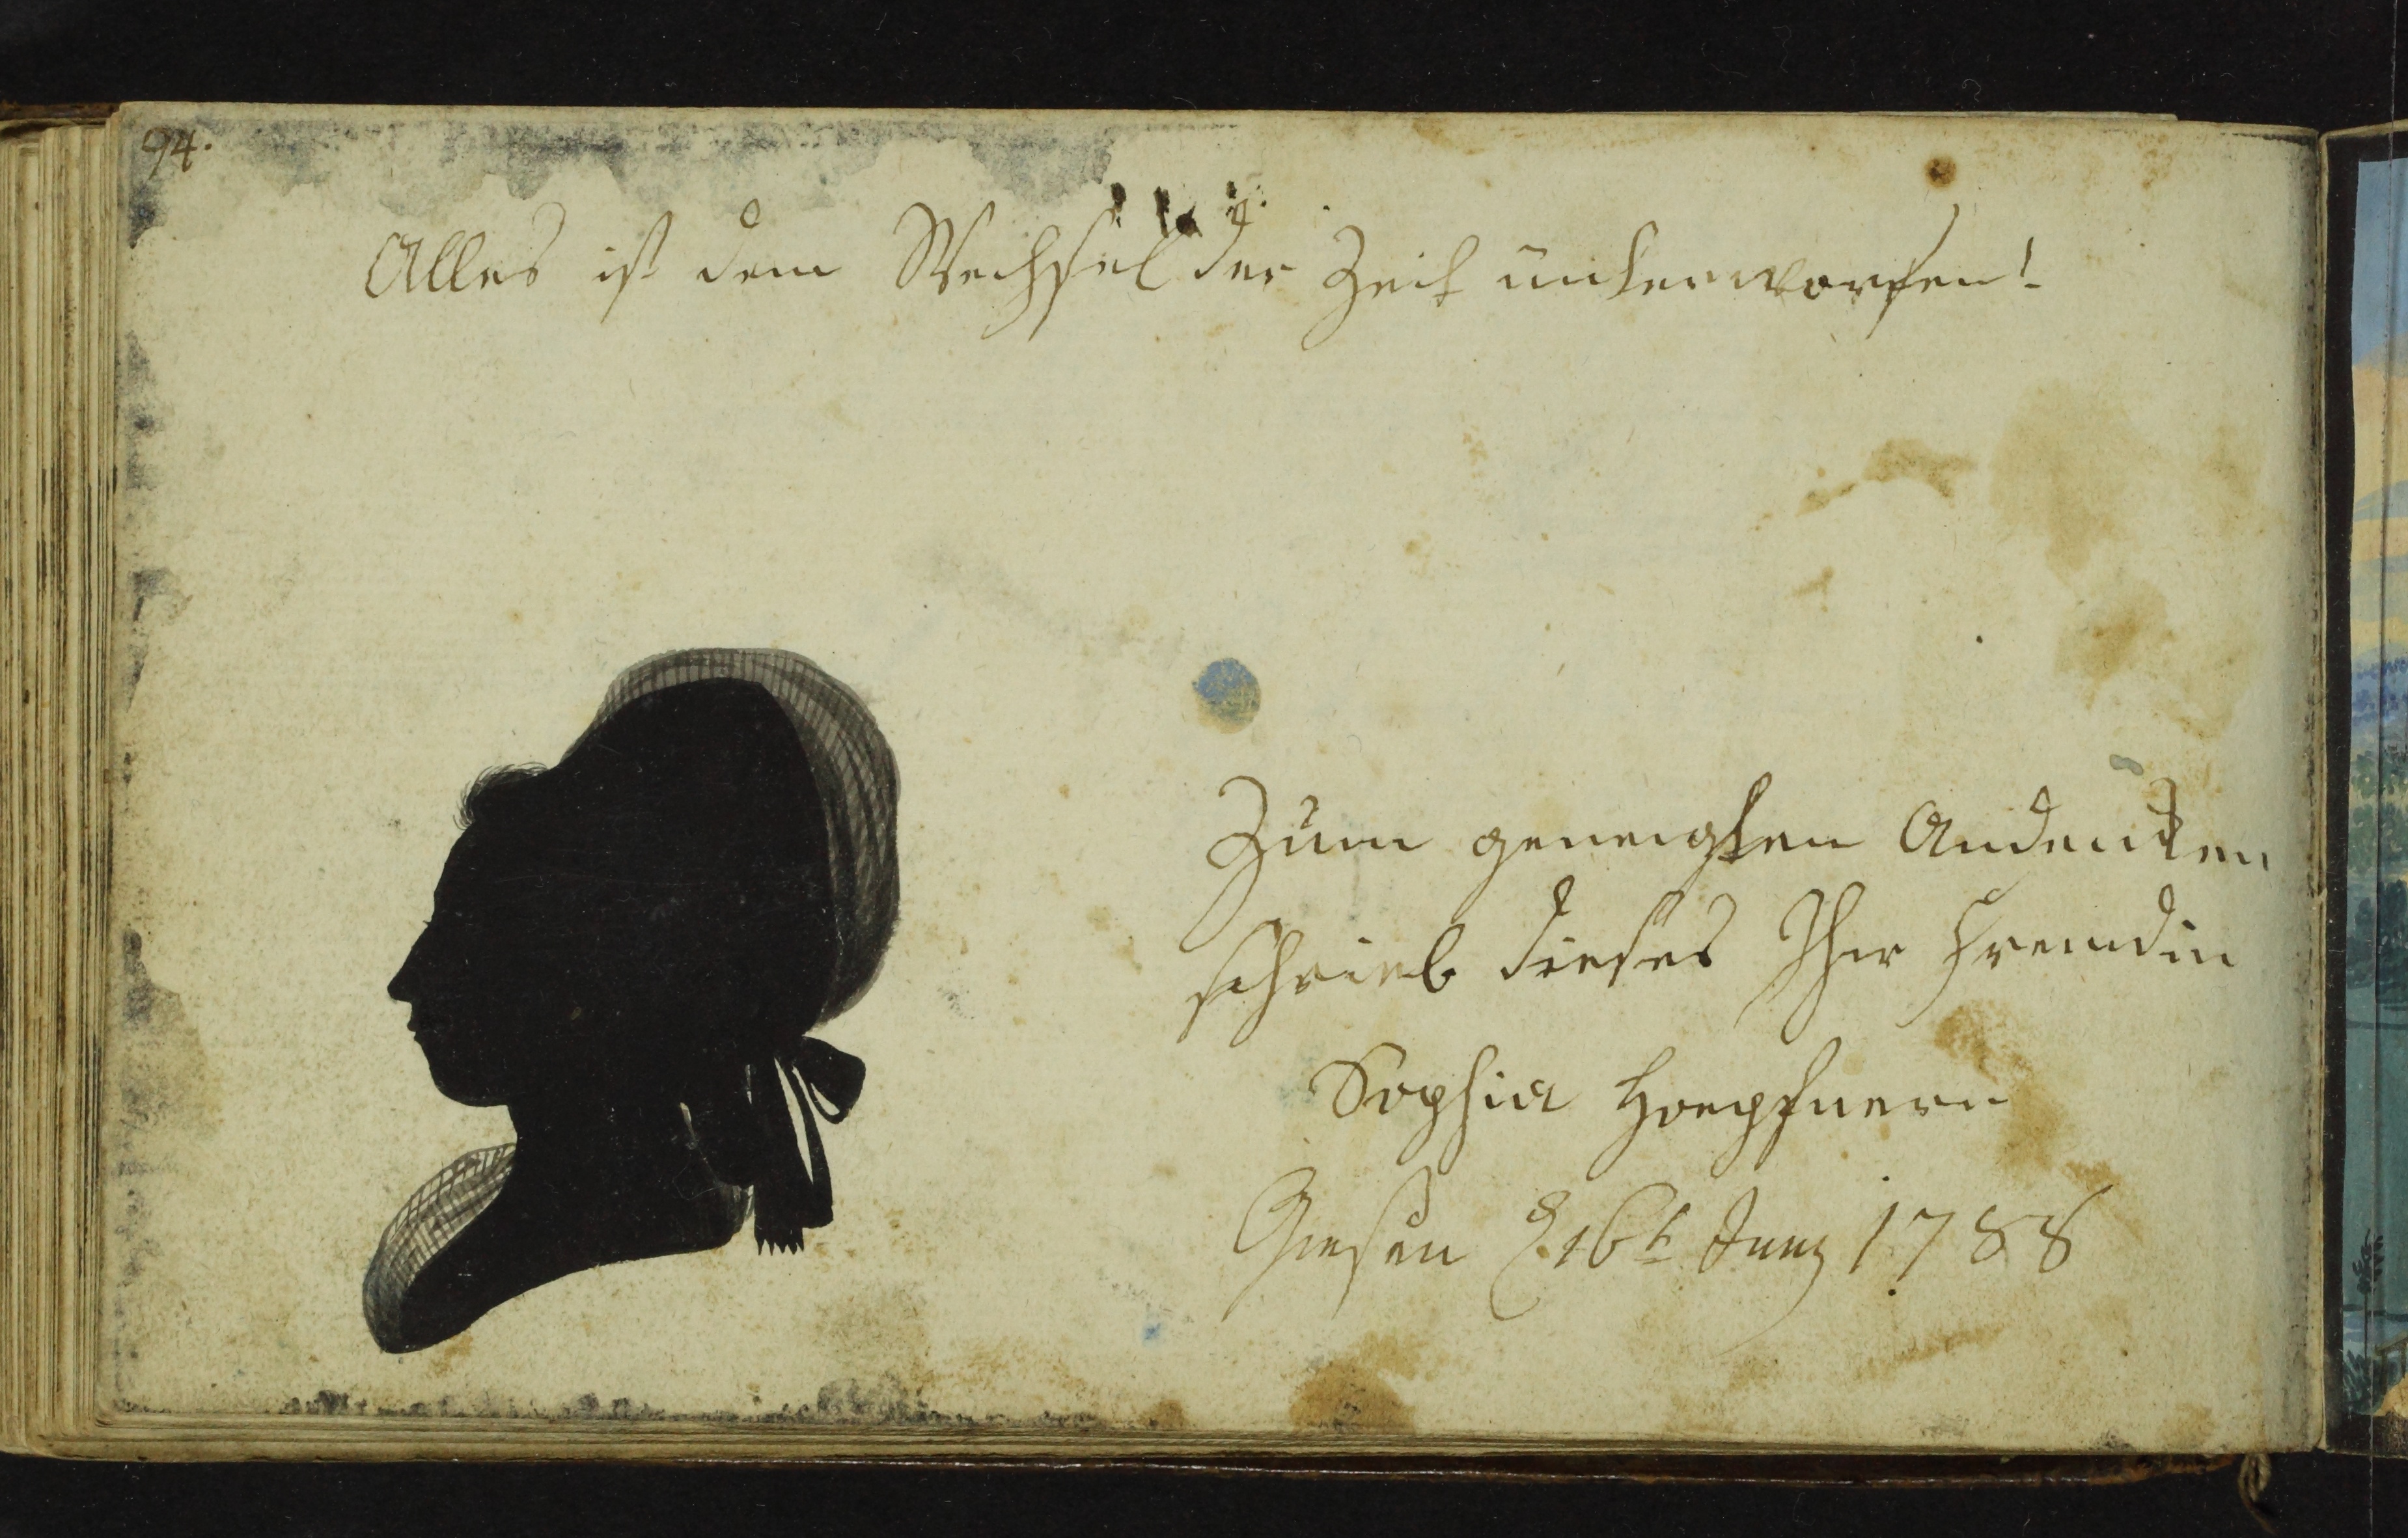 94.
Alles ist dem Wechsel der Zeit unterworfen!
Zum geneigten Andencken
schrieb dieses Ihr Freundin
Sophia Hoepfnern
Giesen d. 16t Juny 1788